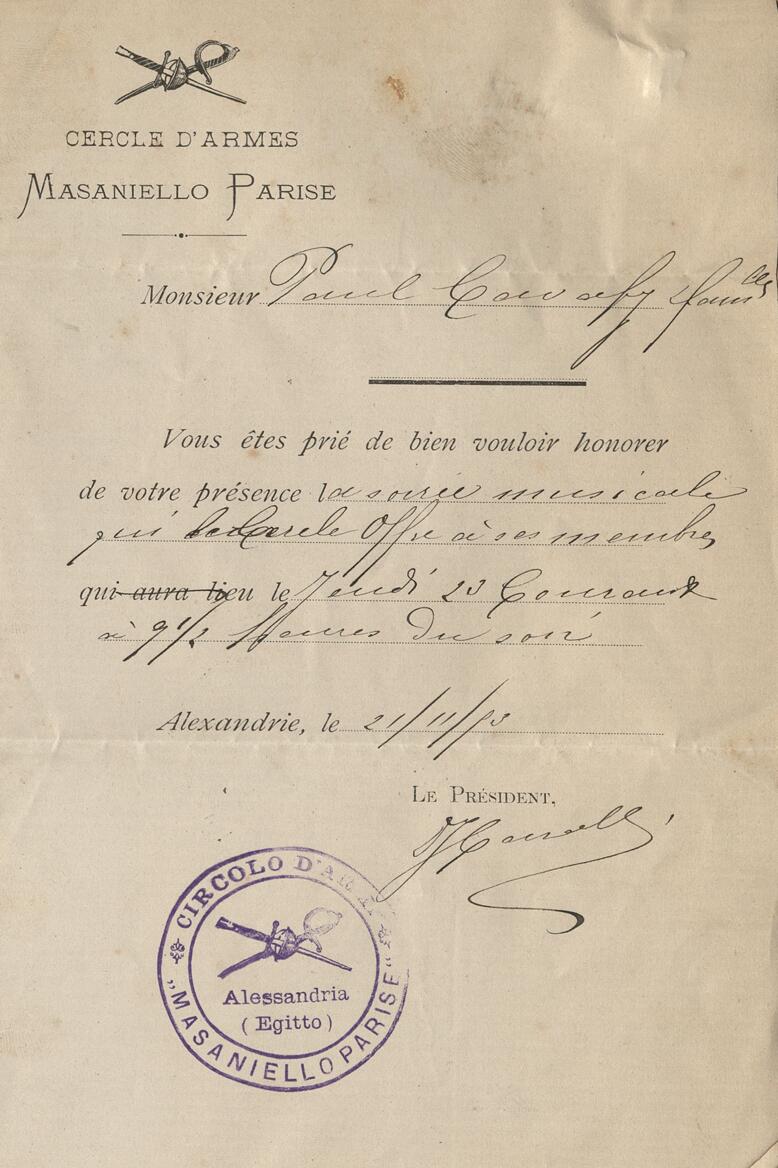 CERCLE D'ARMES
MASANIELLO PARISE
Monsieur Paul Cavafy
Vous êtes prié de bien vouloir honorer
de votre présence la soirée musicale
qui le Cercle Offre à ses membres
qui aura lieu le Jeudi 23 Courant
à 9 1/2 Heures du soir
Alexandrie, le 21/11/93
LE PRÉSIDENT,
CIRCOLO D'ARMI
Alessandria
(Egitto)
„MASANIELLO PARISE"